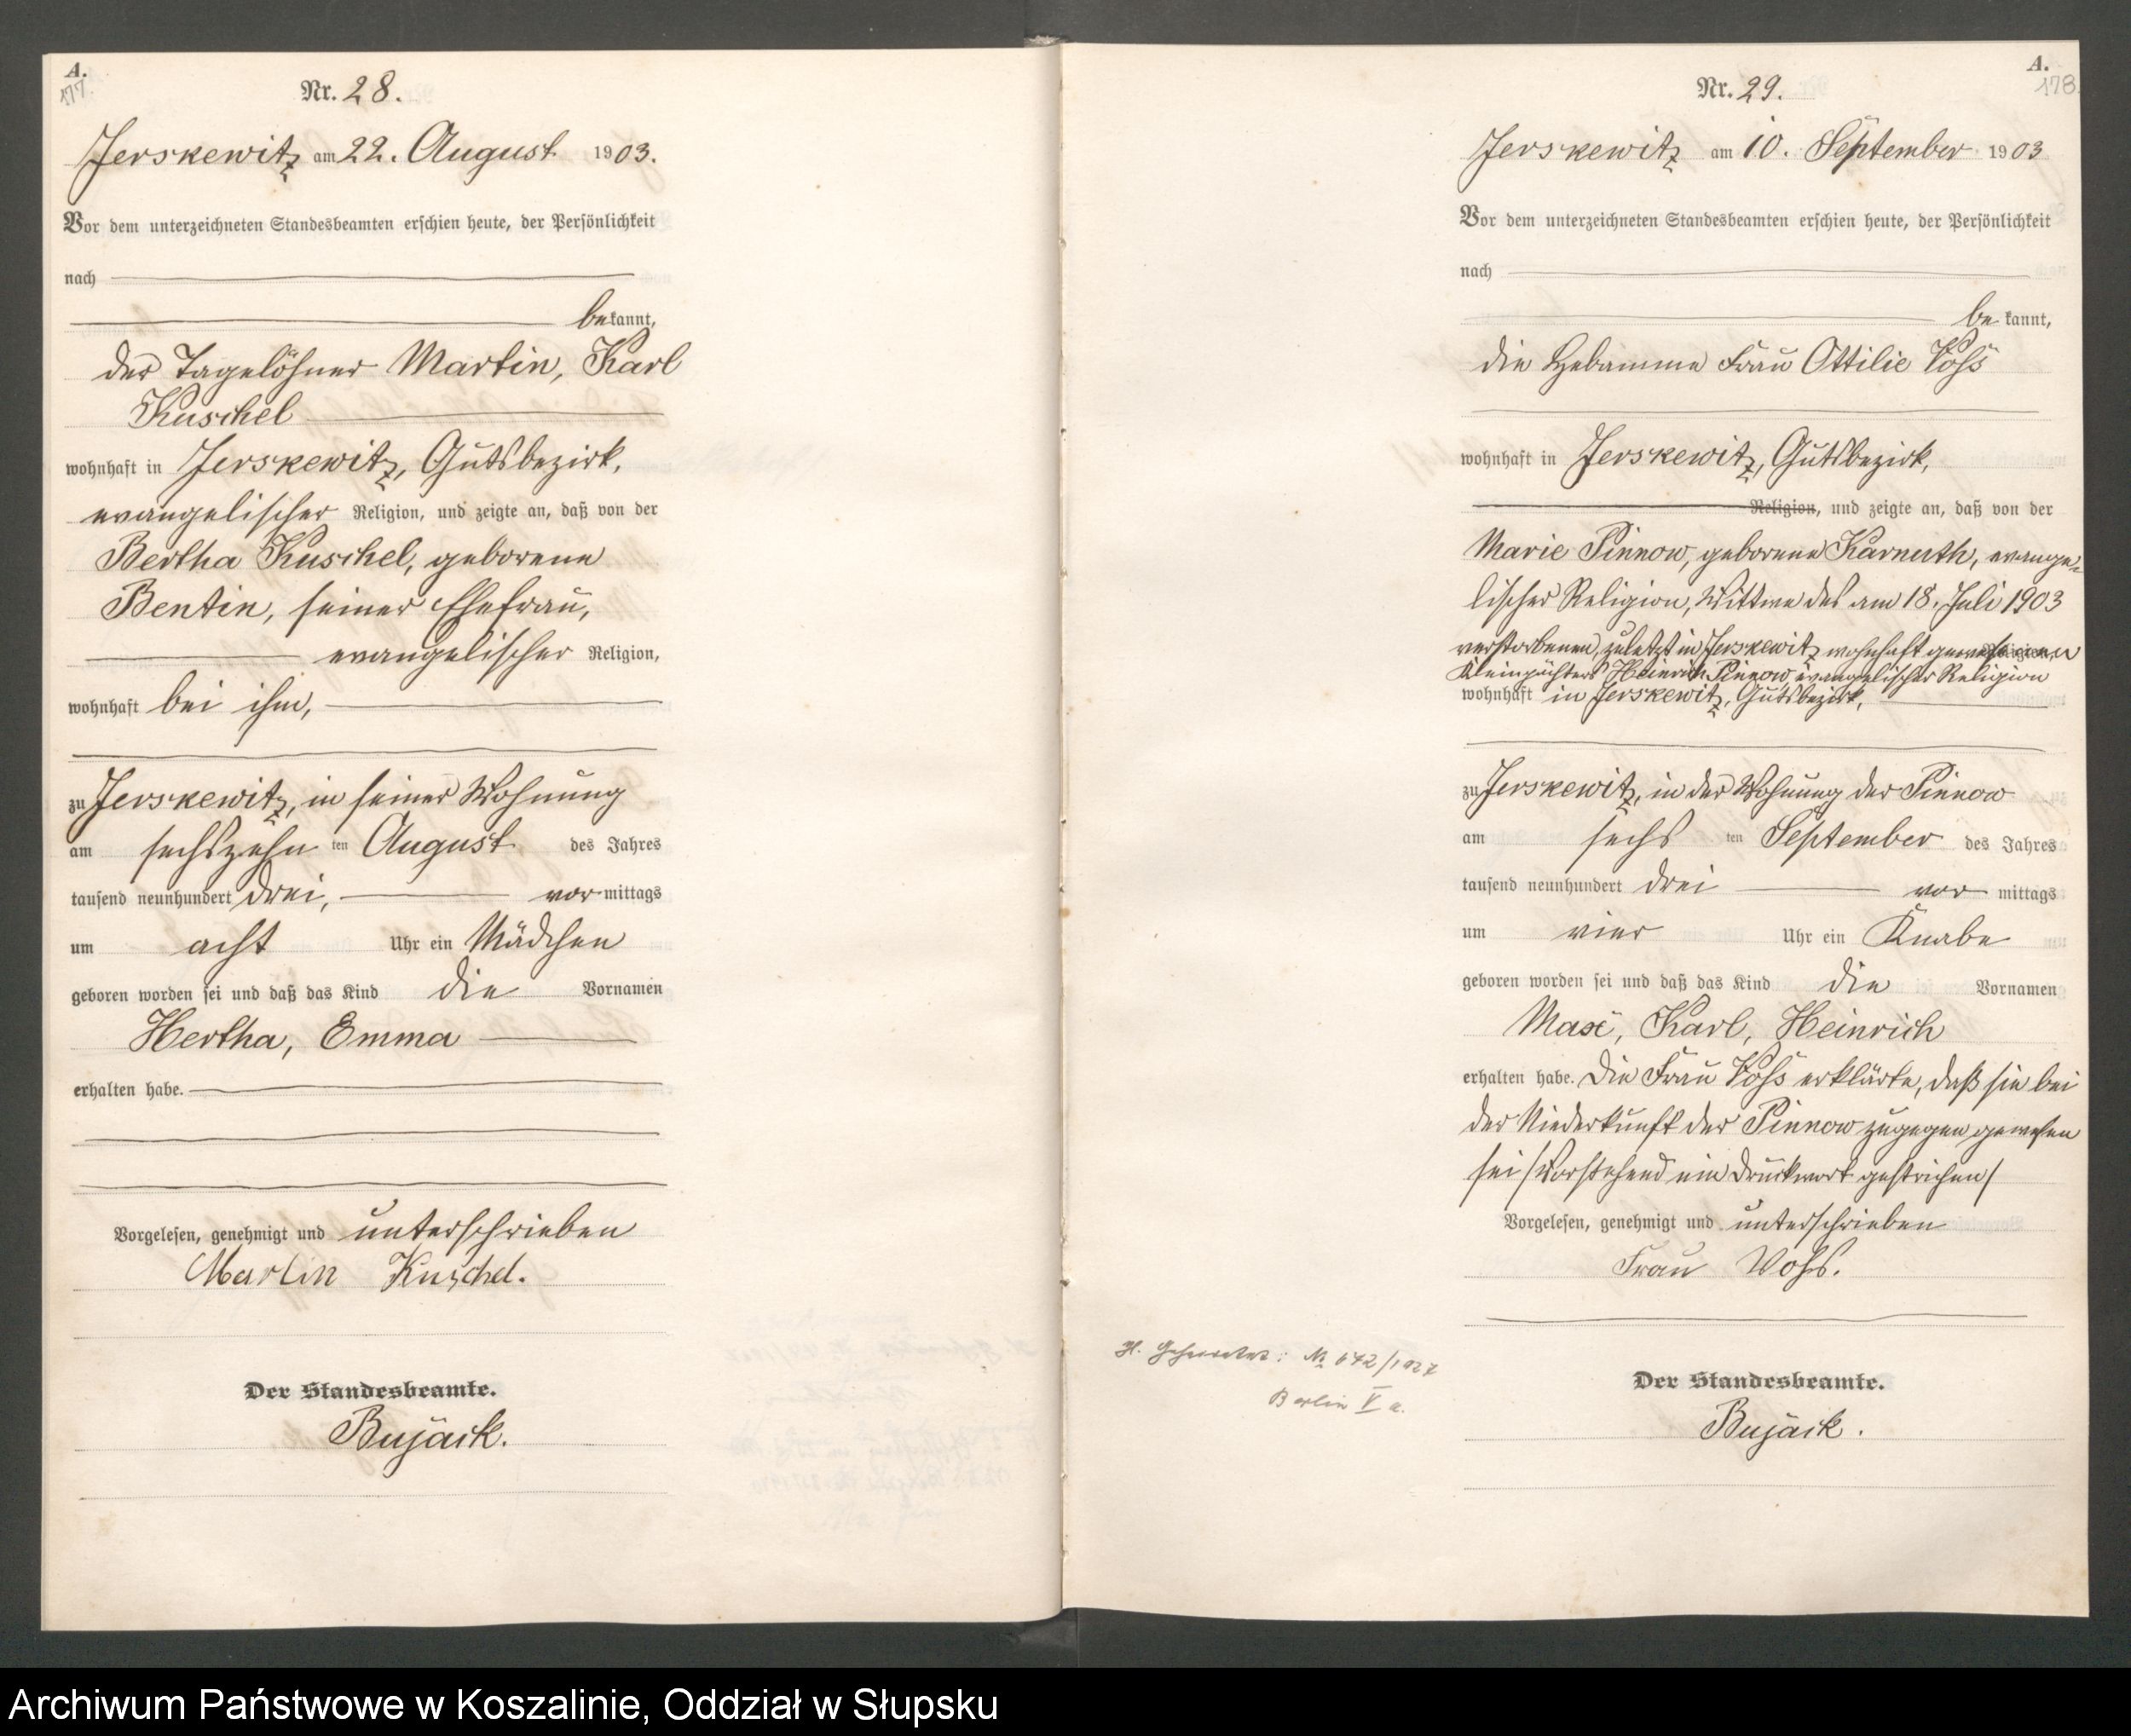 A.
177.
Nr. 28.
Jerskewitz am 22. August 1903.
Vor dem unterzeichneten Standesbeamten erschien heute, der Persönlichkeit
nach
bekannt,
der Tagelöhner Martin, Karl
Kuschel
wohnhaft in Jerskewitz, Gutsbezirk,
evangelischer Religion, und zeigte an, daß von der
Bertha Kuschel, geborene
Bentin, seiner Ehefrau,
evangelischer Religion,
wohnhaft bei ihm,
zu Jerskewitz, in seiner Wohnung
am sechszehn ten August des Jahres
tausend neunhundert drei, vor mittags
um acht Uhr ein Mädchen
geboren worden sei und daß das Kind die Vornamen
Hertha, Emma
erhalten habe.
Vorgelesen, genehmigt und unterschrieben
Martin Kuschel.
Der Standesbeamte.
Bujack.
A.
178.
Nr. 29.
Jerskewitz am 10. September 1903
Vor dem unterzeichneten Standesbeamten erschien heute, der Persönlichkeit
nach
be kannt,
die Hebamme Frau Ottilie Voß
wohnhaft in Jerskewitz, Gutsbezirk,
Religion, und zeigte an, daß von der
Marie Pinnow, geborene Karnuth, evange-
lischer Religion, Wittwe des am 18. Juli 1903
verstorbenen, zuletzt in Jerskewitz wohnhaft gewesenen
Kleinpächters Heinrich Pinnow evangelischer Religion
wohnhaft in Jerskewitz, Gutsbezirk,
zu Jerskewitz, in der Wohnung der Pinnow
am sechs ten September des Jahres
tausend neunhundert drei vor mittags
um vier Uhr ein Knabe
geboren worden sei und daß das Kind die Vornamen
Max, Karl, Heinrich
erhalten habe. Die Frau Voß erklärte, daß sie bei
der Niederkunft der Pinnow zugegen gewesen
sei /Vorstehend ein Druckwort gestrichen/
Vorgelesen, genehmigt und unterschrieben
Frau Voß.
H. Geheiratet: № 642/1927
Berlin V a.
Der Standesbeamte.
Bujack.
Archiwum Państwowe w Koszalinie, Oddział w Słupsku